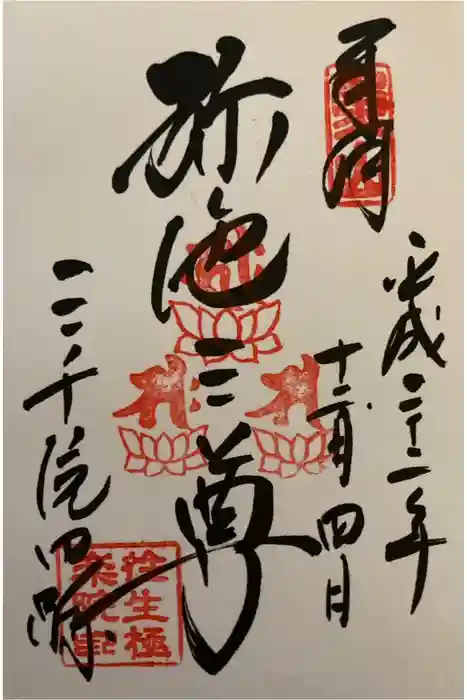 奉拝
平成二十二年
十二月四日
弥陀三尊
三千院門跡
往生極
楽院